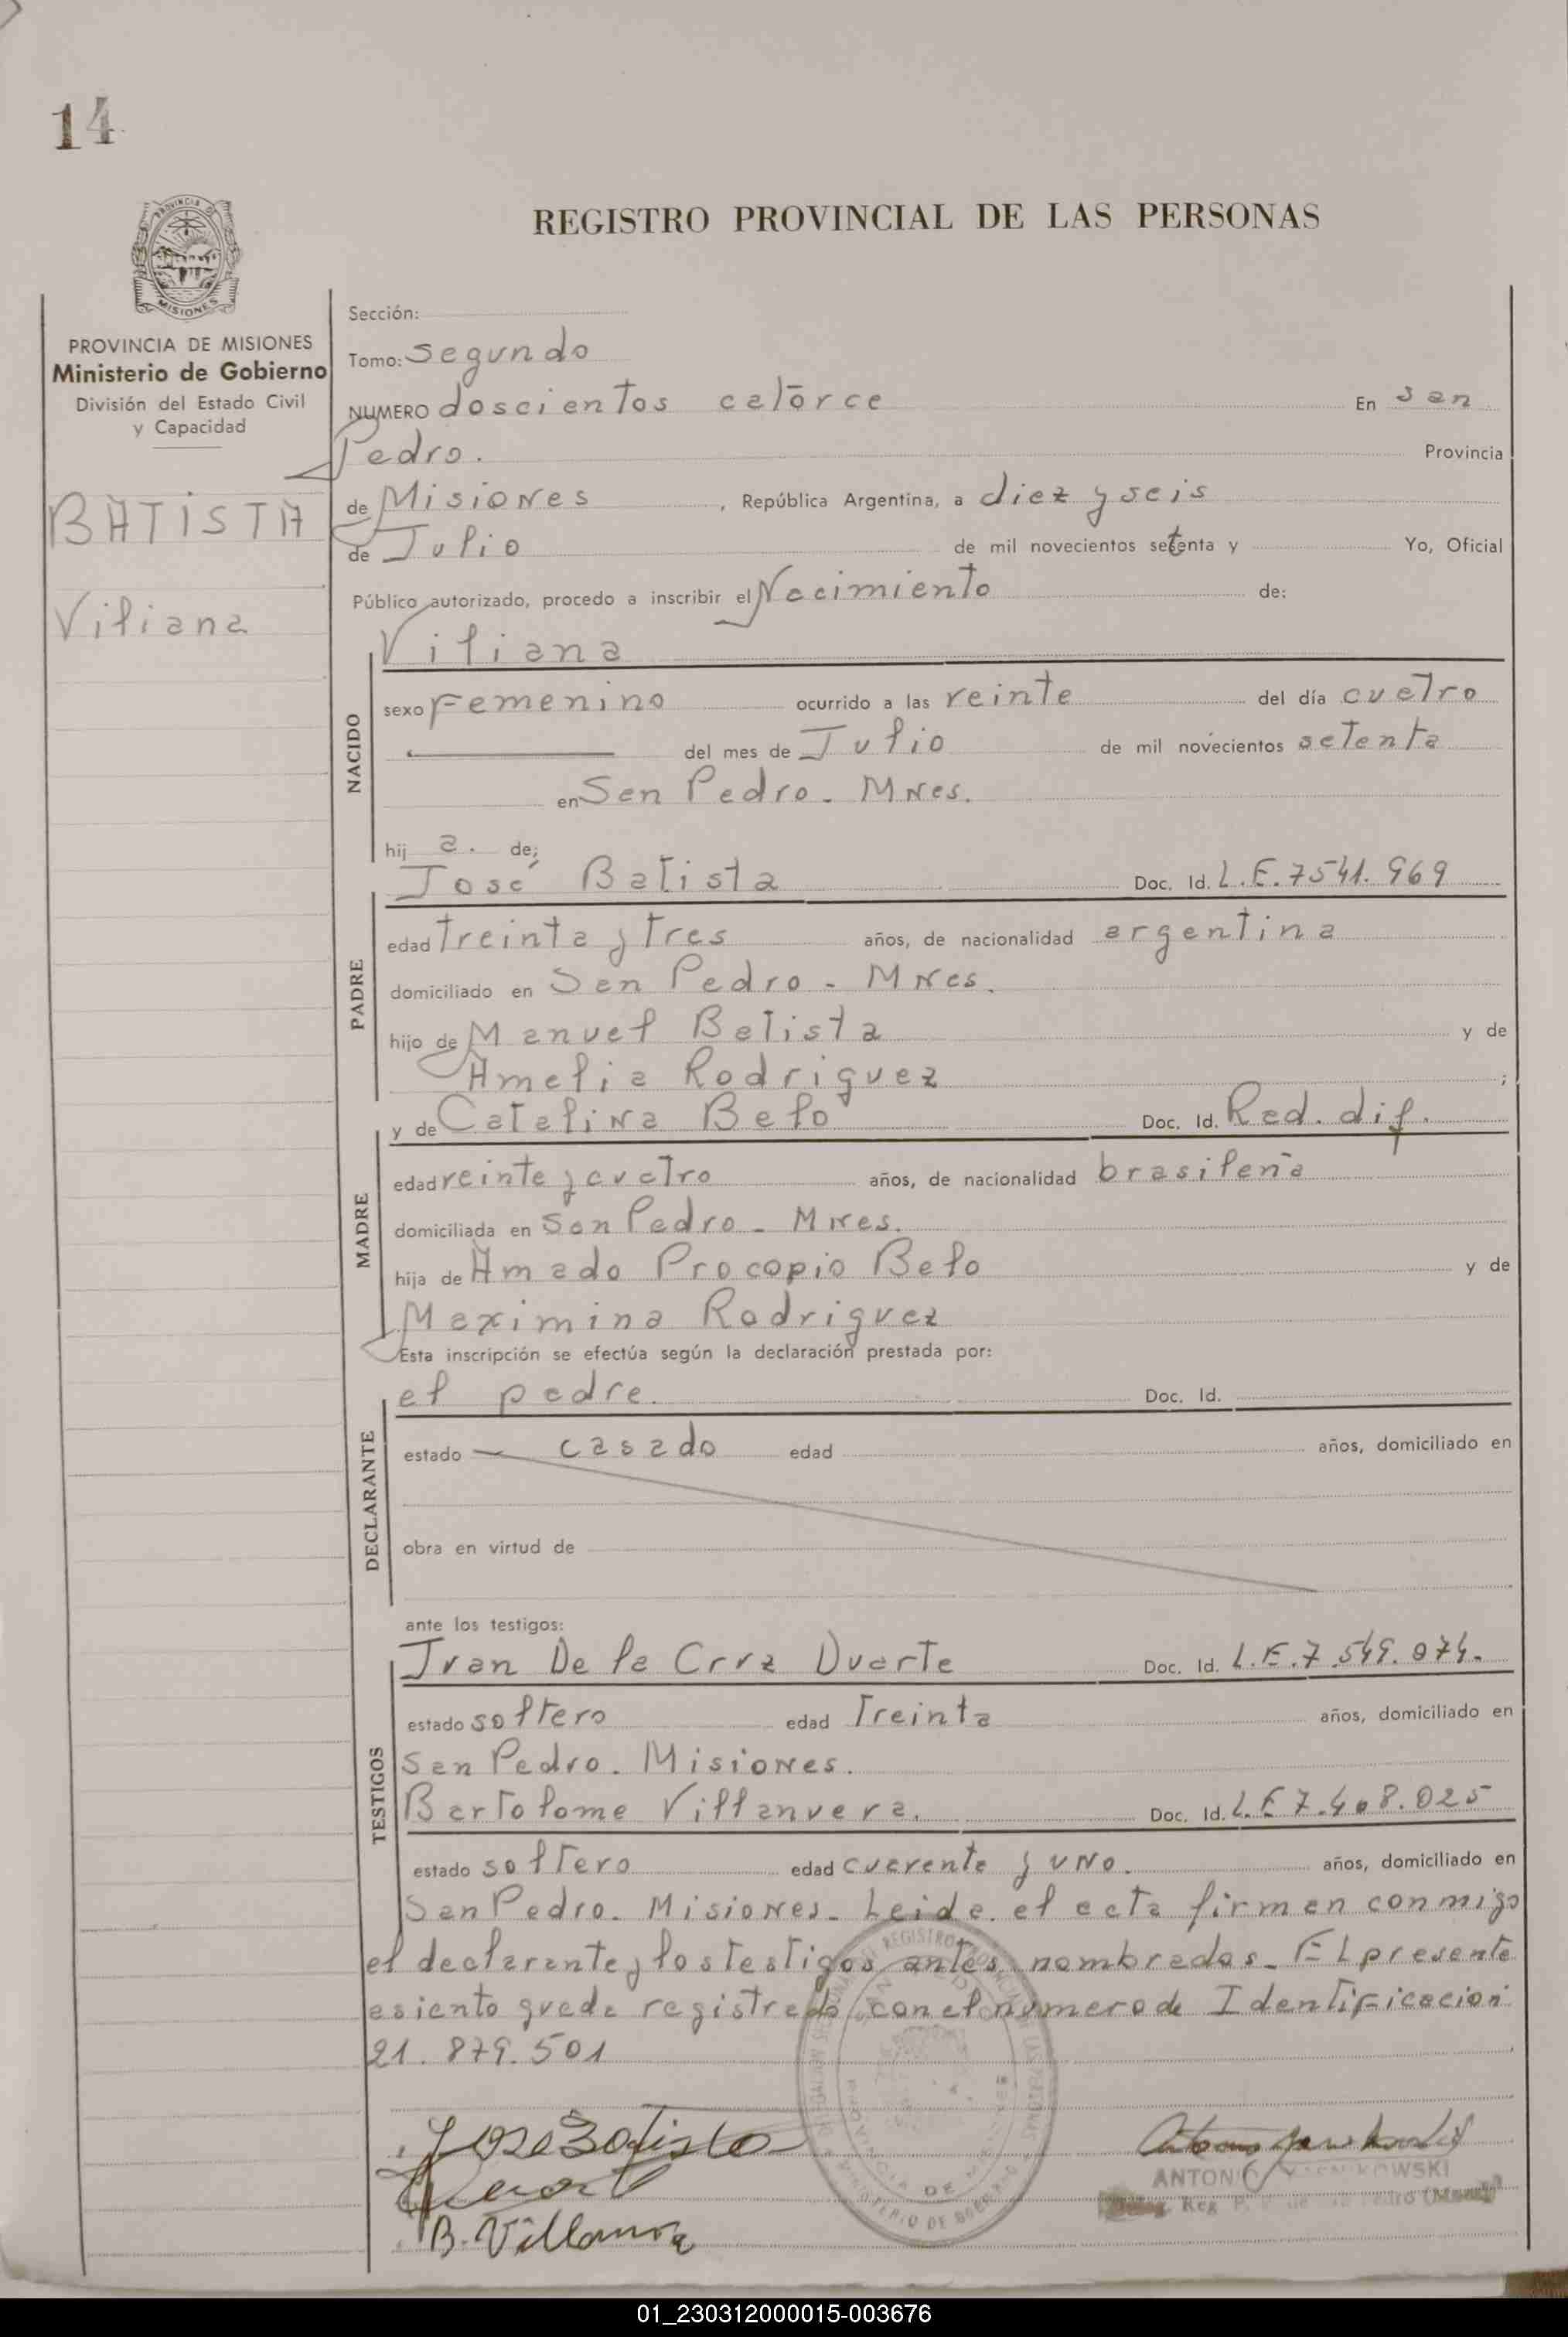 14
REGISTRO PROVINCIAL DE LAS PERSONAS
PROVINCIA DE MISIONES
Ministerio de Gobierno
División del Estado Civil
y Capacidad
BATISTA
Viliana
Sección:
Tomo: Segundo
NUMERO doscientos catorce En San
Pedro. Provincia
de Misiones , República Argentina, a diez y seis
de Julio de mil novecientos setenta y Yo, Oficial
Público autorizado, procedo a inscribir el Nacimiento de:
Viliana
NACIDO
sexo Femenino ocurrido a las veinte del día cuatro
del mes de Julio de mil novecientos setenta
en San Pedro - MNes.
hij a. de;
José Batista Doc. Id. L.E. 7541.969
PADRE
edad treinta y tres años, de nacionalidad argentina
domiciliado en San Pedro - MNes.
hijo de Manuel Batista y de
Amelia Rodriguez ;
y de Catalina Belo Doc. Id. Red. dif.
MADRE
edad veinte y cuatro años, de nacionalidad brasileña
domiciliada en San Pedro - MNes.
hija de Amado Procopio Belo y de
Maximina Rodriguez
Esta inscripción se efectúa según la declaración prestada por:
el padre. Doc. Id.
DECLARANTE
estado — casado edad años, domiciliado en
obra en virtud de
ante los testigos:
Juan De la Cruz Duarte Doc. Id. L.E. 7.549.074.
TESTIGOS
estado soltero edad Treinta años, domiciliado en
San Pedro. Misiones.
Bartolome Villanueva. Doc. Id. L.E 7.408.025
estado soltero edad cuarenta y uno. años, domiciliado en
San Pedro. Misiones- Leida el acta firman conmigo
el declarante y los testigos antes nombrados- El presente
asiento queda registrado con el número de Identificacion
21.879.501
José Batista
Duarte
B. Villanueva
ANTONIO
01_230312000015-003676